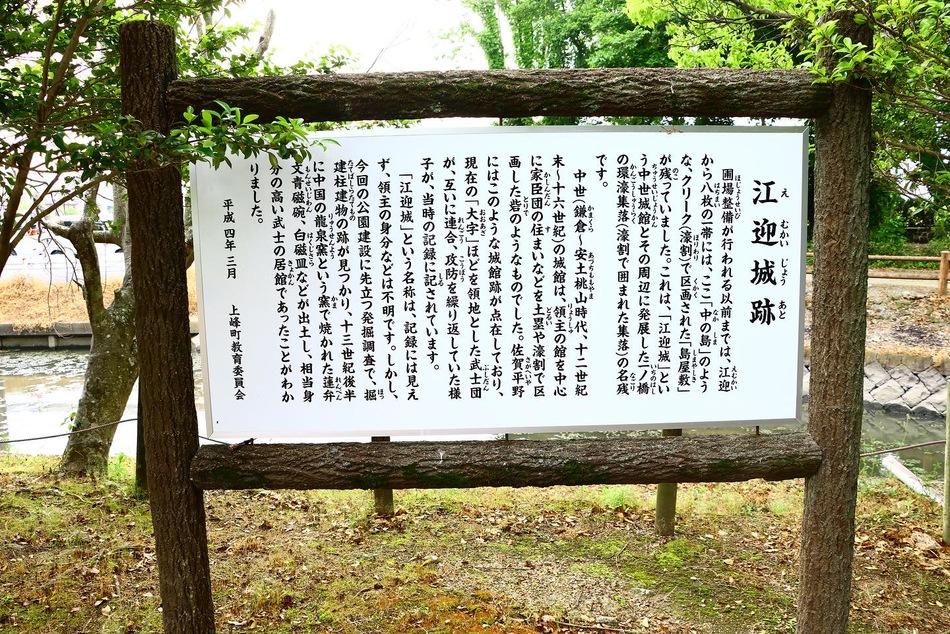 江迎城跡
えむかいじょうあと
圃場整備が行われる以前までは、江迎
から八枚の一帯には、ここ「中の島」のよう
な、クリーク(濠割)で区画された「島屋敷」
が残っていました。これは、「江迎城」とい
う中世城館とその周辺に発展した一ノ橋
の環濠集落(濠割で囲まれた集落)の名残
です。
中世(鎌倉～安土桃山時代、十二世紀
末～十六世紀)の城館は、領主の館を中心
に家臣団の住まいなどを土塁や濠割で区
画した砦のようなものでした。佐賀平野
にはこのような城館跡が点在しており、
現在の「大字」ほどを領地とした武士団
が、互いに連合、攻防を繰り返していた様
子が、当時の記録に記されています。
「江迎城」という名称は、記録には見え
ず、領主の身分などは不明です。しかし、
今回の公園建設に先立つ発掘調査で、掘
建柱建物の跡が見つかり、十三世紀後半
に中国の龍泉窯という窯で焼かれた蓮弁
文青磁碗、白磁皿などが出土し、相当身
分の高い武士の居館であったことがわか
りました。
平成四年三月　上峰町教育委員会